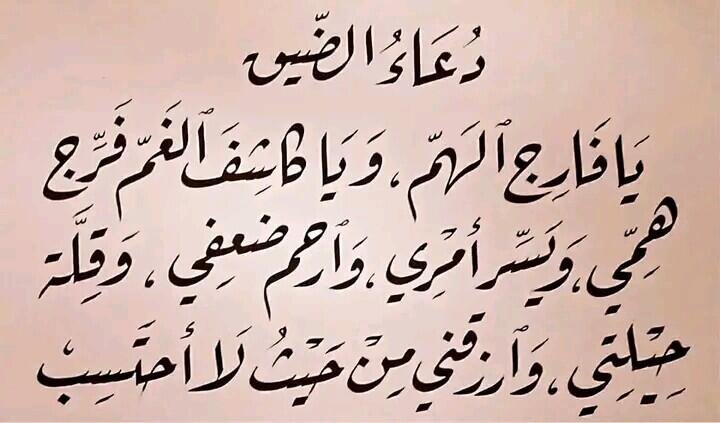 دُعَاءُ الضّيق
يَا فَارِج ٱلهَمّ، وَيَا كَاشِفَ ٱلغَمّ فَرِّج
هِمِّي، وَيَسِّر أمْرِي، وَٱرحم ضعفِي، وَقِلَّة
حِيْلِتِي، وَٱرزقني مِنْ حَيْثُ لَا أحتَسِبْ